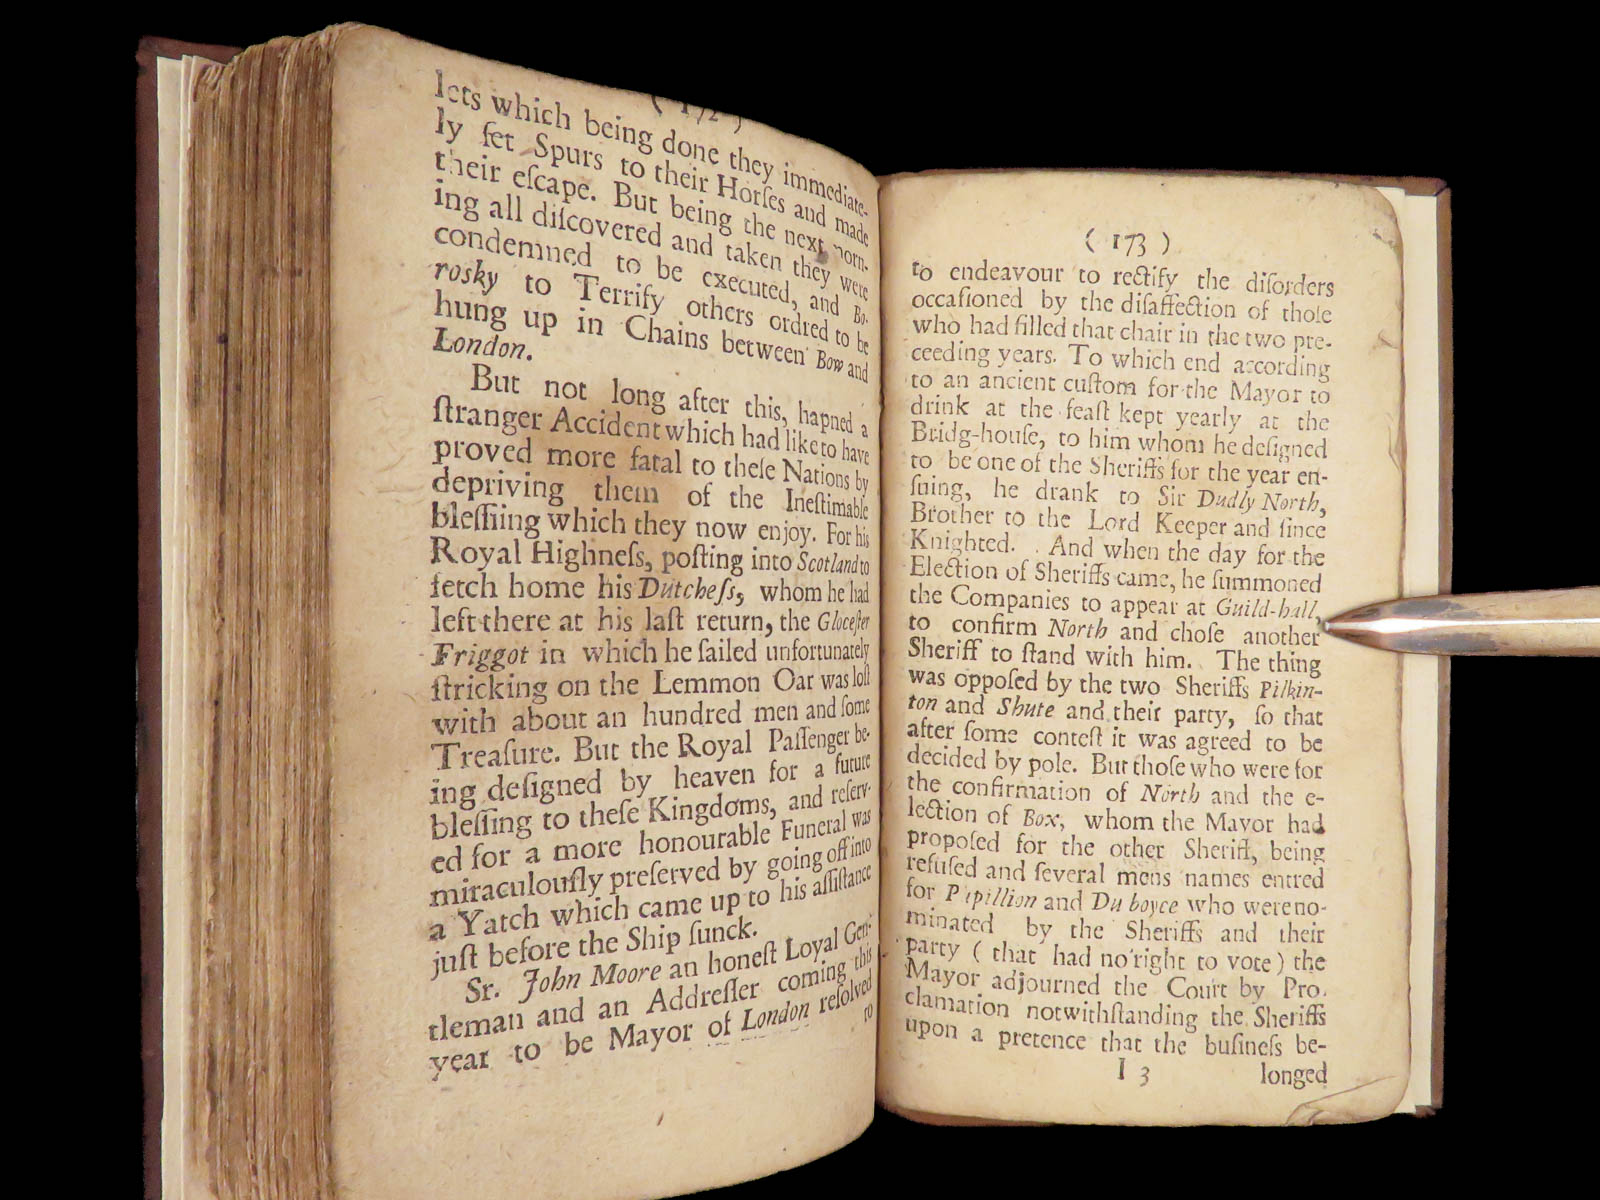 ( 172 )
lets which being done they immediate-
ly ſet Spurs to their Horſes and made
their eſcape. But being the next morn-
ing all diſcovered and taken they were
condemned to be executed, and Bo-
rosky to Terrify others ordred to be
hung up in Chains between Bow and
London.
But not long after this, hapned a
ſtranger Accident which had like to have
proved more fatal to theſe Nations by
depriving them of the Ineſtimable
bleſſiing which they now enjoy. For his
Royal Highneſs, poſting into Scotland to
fetch home his Dutcheſs, whom he had
left there at his laſt return, the Gloceſter
Friggot in which he ſailed unfortunately
ſtricking on the Lemmon Oar was loſt
with about an hundred men and ſome
Treaſure. But the Royal Paſſenger be-
ing deſigned by heaven for a future
bleſſing to theſe Kingdoms, and reſerv-
ed for a more honourable Funeral was
miraculouſly preſerved by going off into
a Yatch which came up to his aſſiſtance
juſt before the Ship ſunck.
Sr. John Moore an honeſt Loyal Gen-
tleman and an Addreſſer coming this
year to be Mayor of London reſolved
to
( 173 )
to endeavour to rectify the diſorders
occaſioned by the diſaffection of thoſe
who had filled that chair in the two pre-
ceeding years. To which end according
to an ancient cuſtom for the Mayor to
drink at the feaſt kept yearly at the
Bridg-houſe, to him whom he deſigned
to be one of the Sheriffs for the year en-
ſuing, he drank to Sir Dudly North,
Brother to the Lord Keeper and ſince
Knighted. And when the day for the
Election of Sheriffs came, he ſummoned
the Companies to appear at Guild-hall,
to confirm North and choſe another
Sheriff to ſtand with him. The thing
was oppoſed by the two Sheriffs Pilkin-
ton and Shute and their party, ſo that
after ſome conteſt it was agreed to be
decided by pole. But thoſe who were for
the confirmation of North and the e-
lection of Box, whom the Mayor had
propoſed for the other Sheriff, being
refuſed and ſeveral mens names entred
for Papillion and Du boyce who were no-
minated by the Sheriffs and their
party ( that had no right to vote ) the
Mayor adjourned the Court by Pro-
clamation notwithſtanding the Sheriffs
upon a pretence that the buſineſs be-
I 3 longed